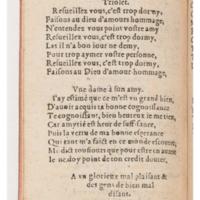 Triolet.
Resueillez vous, c'est trop dormy,
Faisons au dieu d'amours hommage,
N'entendez vous point vostre amy
Resueillez vous, c'est trop dormy,
Let il n'a bon iour ne demy,
Pour trop aymer vostre personne,
Resueillez vous, c'est trop dormy,
Faisons au Dieu d'amour hommage.
Vne dame à son amy.
I'ay estimé que ce m'est vn grand bien,
D'auoir acquis ta bonne cognoissance
Te cognoissant, bien heureux ie me tien,
Car amytié est heur de suffisance,
Puis la vertu de ma bonne esperance
Qui tant m'a faict en ce monde
Me dict tousiours que pour estre en
Ie ne doy point de ton credit douter.
A vn glorieux mal plaisant &
des gens de bien mal
disant.